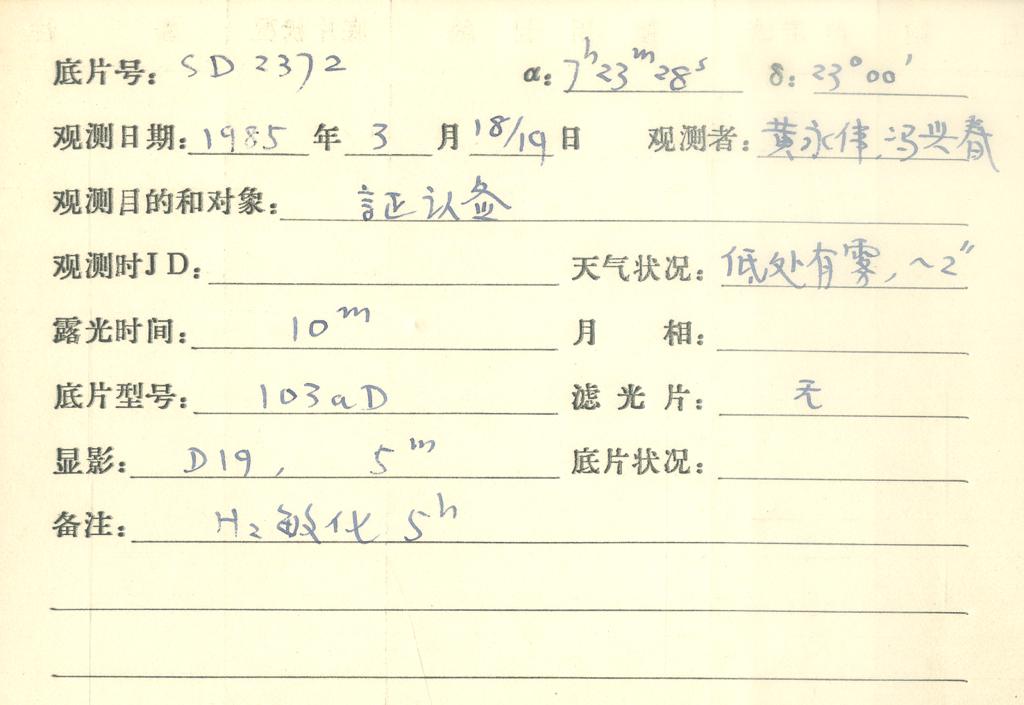 底片号: SD 2372 α: 7h23m28s δ: 23°00′
观测日期: 1985 年 3 月 18/19 日 观测者: 黄永伟、冯兴春
观测目的和对象: 証认
观测时JD: 天气状况: 低处有雾, ~2″
露光时间: 10m 月 相:
底片型号: 103aD 滤光片: 无
显影: D19, 5m 底片状况:
备注: H₂敏化 5h